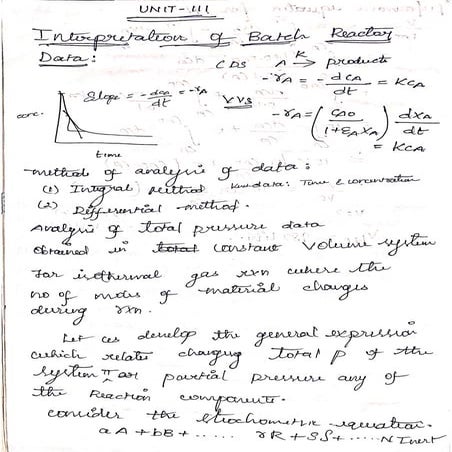 UNIT-III
Interpretation of Batch Reactor
Data:
CDS A K→ products
-rA = -dCA/dt = KCA
Slope = -dCA/dt = -rA
VVS -rA = (CA0/1+εAXA) dXA/dt
= KCA
conc.
time
method of analysis of data:
(1) Integral Method Kine data: Time & concentration
(2) Differential method.
Analysis of total pressure data
obtained in total constant volume system
for isothermal gas rxn where the
no of moles of material changes
during rxn.
Let us develop the general expression
which relate changing total P of the
system π or partial pressure any of
the Reaction components.
consider the stochometric equation.
aA + bB + ..... rR + sS + .... N Inert